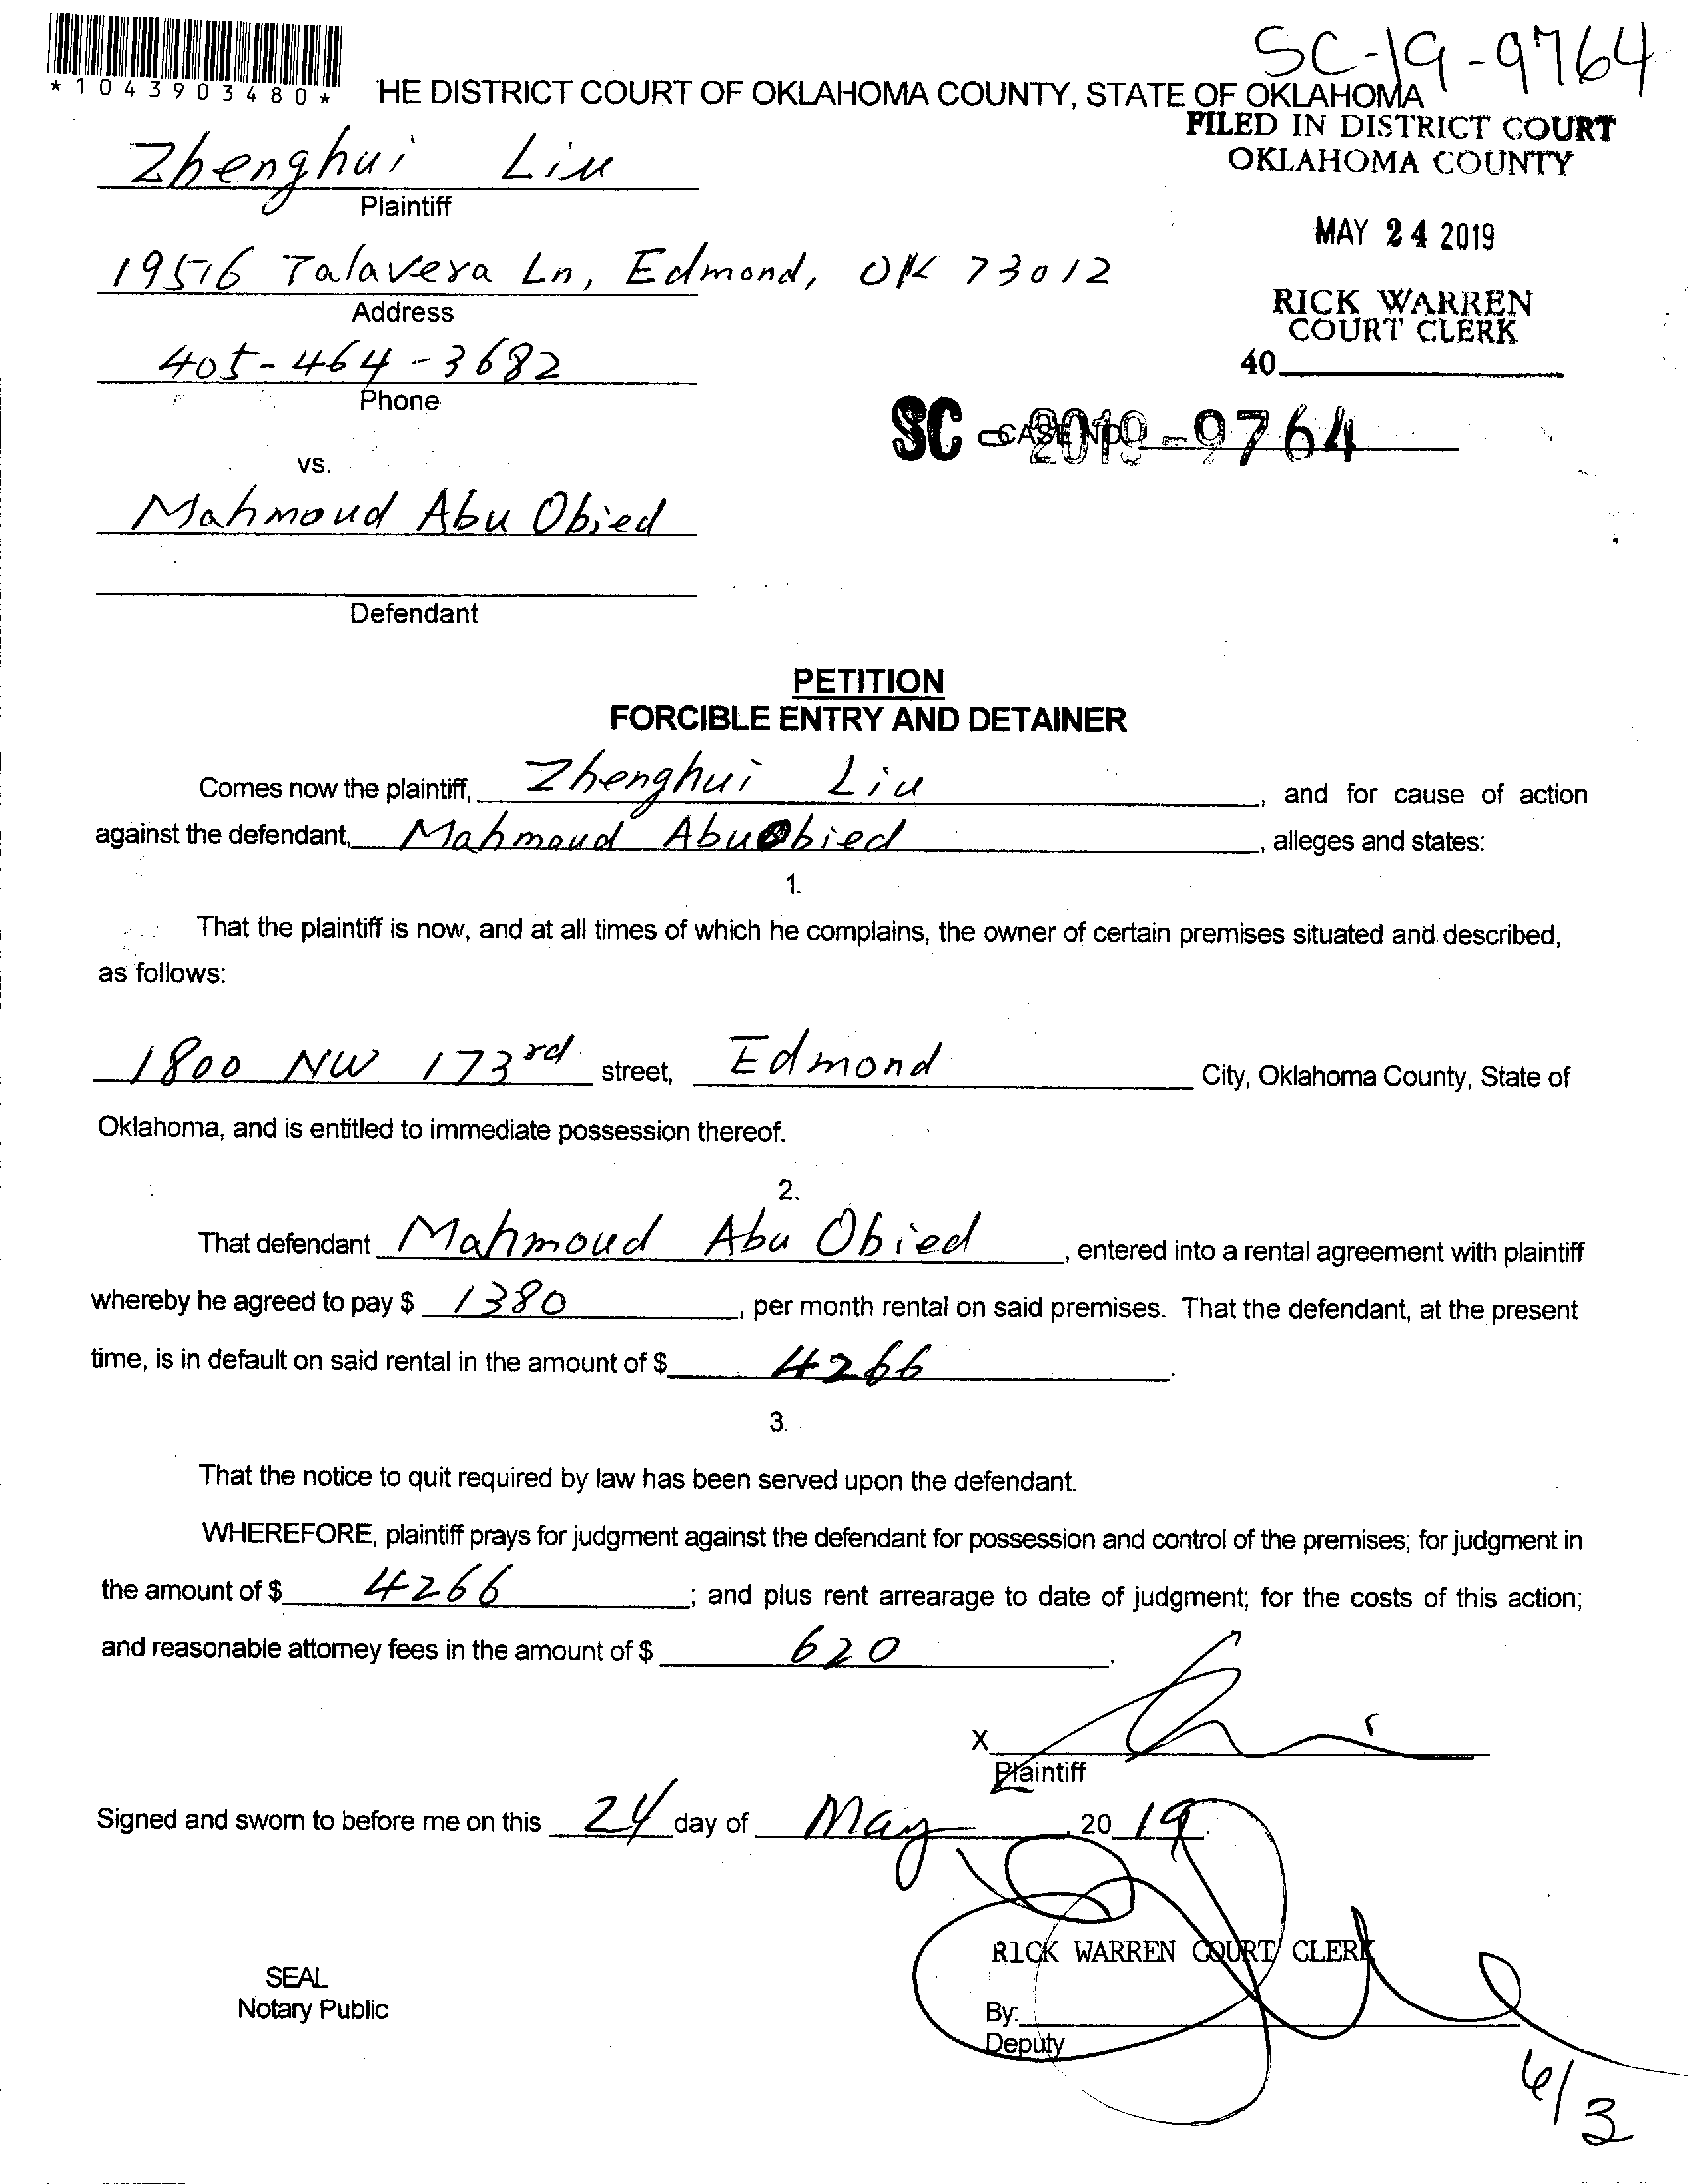 SC-19-9764
*1043903480*
HE DISTRICT COURT OF OKLAHOMA COUNTY, STATE OF OKLAHOMA
FILED IN DISTRICT COURT
OKLAHOMA COUNTY
Zhenghui Liu
Plaintiff
MAY 24 2019
19516 Talavera Ln, Edmond, OK 73012
Address
RICK WARREN
COURT CLERK
405-464-3682
Phone
40
SC - 2019 - 9764
CASE NO.
vs.
Mahmoud Abu Obied
Defendant
PETITION
FORCIBLE ENTRY AND DETAINER
Comes now the plaintiff, Zhenghui Liu, and for cause of action
against the defendant, Mahmoud Abu Obied, alleges and states:
1.
That the plaintiff is now, and at all times of which he complains, the owner of certain premises situated and described,
as follows:
1800 NW 173rd street, Edmond City, Oklahoma County, State of
Oklahoma, and is entitled to immediate possession thereof.
2.
That defendant Mahmoud Abu Obied, entered into a rental agreement with plaintiff
whereby he agreed to pay $ 1380, per month rental on said premises. That the defendant, at the present
time, is in default on said rental in the amount of $ 4266.
3.
That the notice to quit required by law has been served upon the defendant.
WHEREFORE, plaintiff prays for judgment against the defendant for possession and control of the premises; for judgment in
the amount of $ 4266; and plus rent arrearage to date of judgment; for the costs of this action;
and reasonable attorney fees in the amount of $ 620.
X
Plaintiff
Signed and sworn to before me on this 24 day of May, 2019.
RICK WARREN COURT CLERK
SEAL
Notary Public
By:
Deputy
6/3